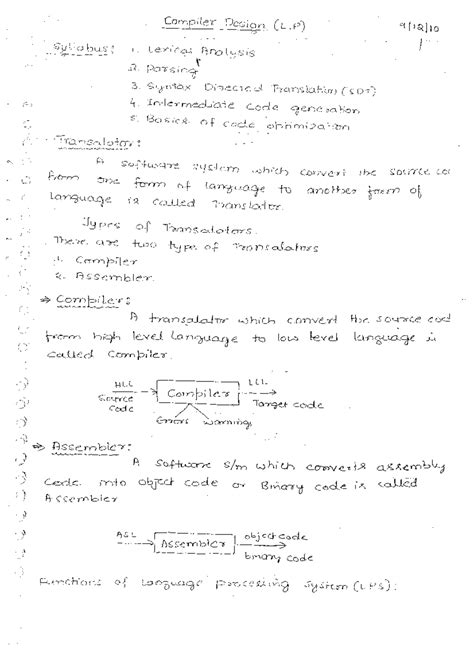 Compiler Design (L.P) 9/12/10
Syllabus: 1. Lexical Analysis
2. Parsing
3. Syntax Directed Translation (SDT)
4. Intermediate code generation
5. Basics of code optimization
Translator:
A software system which convert the source cod
from one form of language to another form of
language is called Translator.
Types of Translators.
There are two type of Translators
1. Compiler
2. Assembler.
⇒ Compiler:
A translator which convert the source cod
from high level language to low level language is
called compiler.
HLL LLL
Source Compiler
code Target code
Errors warnings
⇒ Assembler:
A software s/m which converts assembly
code into object code or Binary code is called
Assembler
ASL object code
Assembler
binary code
Functions of Language processing system (LPS):